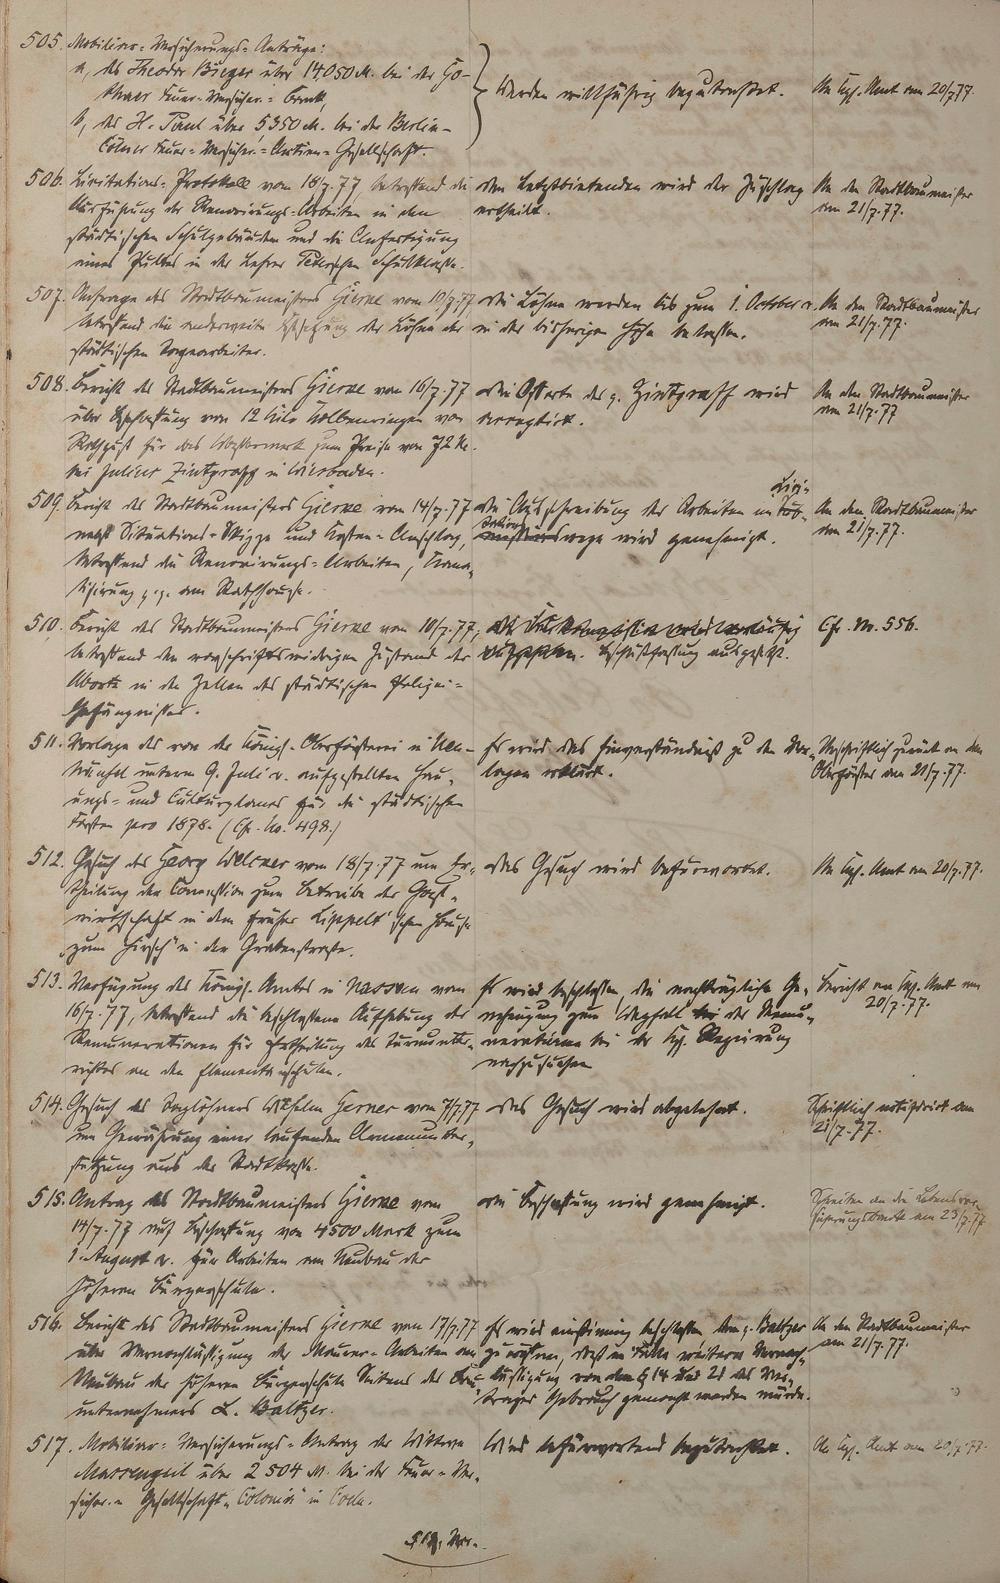 505. Mobiliar-Versicherungs-Anträge:
a, des Theodor Bieger über 14,050 M. bei der Go-
thaer Feuer-Versicher.-Bank,
b, des H. Paul über 5350 M. bei der Berlin-
Cölner Feuer-Versicher.-Actien-Gesellschaft.
Werden willfährig begutachtet.
An Kgl. Amt am 20/7.77.
506. Licitations-Protokoll vom 18/7.77 betreffend die
Ausführung der Renovirungs-Arbeiten in den
städtischen Schulgebäuden und die Anfertigung
eines Pultes in der Lehrer Schulklasse.
Den Letztbietenden wird der Zuschlag
ertheilt.
An den Stadtbaumeister
am 21/7.77.
507. Anfrage des Stadtbaumeisters Gierke vom 10/7.77,
betreffend die anderweite Festsetzung der Löhne der
städtischen Tagearbeiter.
Die Löhne werden bis zum 1. October c.
in der bisherigen Höhe belassen.
An den Stadtbaumeister
am 21/7.77.
508. Bericht des Stadtbaumeisters Gierke vom 16/7.77
über Beschaffung von 12 Kilo Kolbenringen von
Rothguß für das zum Preise von 72 M.
bei Julius Zintgraff in Wiesbaden.
Die Offerte des p. Zintgraff wird
acceptirt.
An den Stadtbaumeister
am 21/7.77
509. Bericht des Stadtbaumeisters Gierke vom 14/7.77
nebst Situations-Skizze und Kosten-Anschlag,
betreffend die Renovirungs-Arbeiten, Cana-
lisirung p.p. am Rathhause.
Die Ausschreibung der Arbeiten im Sub-
Lici-
tations
missionswege wird genehmigt.
An den Stadtbaumeister
am 21/7.77.
510. Bericht des Stadtbaumeisters Gierke vom 10/7.77,
betreffend den vorschriftswidrigen Zustand der
Aborte in den Zellen des städtischen Polizei-
Gefängnisses.
Beschlußfassung ausgesetzt.
Cfr. No. 556.
511. Vorlage des von der Königl. Oberförsterei in Neu-
häusel unterm 9. Juli c. aufgestellten Hau-
ungs- und Culturplanes für die städtischen
Forsten pro 1878. (Cfr. No. 498.)
Es wird das Einverständniß zu den Vor-
lagen erklärt.
Urschriftlich zurück an den
Oberförster am 21/7.77.
512. Gesuch des Georg vom 18/7.77 um Er-
theilung der Concession zum Betriebe der Gast-
wirthschaft in dem früher Lippelt'schen Hause
„zum Hirsch" in der Grabenstraße.
Das Gesuch wird befürwortet.
An Kgl. Amt am 20/7.77.
513. Verfügung des Königl. Amtes in Nassau vom
16/7.77, betreffend die beschlossene Aufhebung der
Remunerationen für Ertheilung des Turnunter-
richtes an den Elementarschulen.
Es wird beschlossen, die nachträgliche Ge-
nehmigung zum Wegfall der Remu-
nerationen bei der Kgl. Regierung
nachzusuchen
Bericht an Kgl. Amt am
20/7.77.
514. Gesuch des Taglöhners Wilhelm Gerner vom 7/7.77
um Gewährung einer laufenden Armenunter-
stützung aus der Stadtkasse.
Das Gesuch wird abgelehnt.
Schriftlich notificirt am
21/7.77.
515. Antrag des Stadtbaumeisters Gierke vom
14/7.77 auf Beschaffung von 4500 Mark zum
1. August c. für Arbeiten am Neubau der
höheren Bürgerschule.
Die Beschaffung wird genehmigt.
Schreiben an die Lebensver-
sicherungsbank am 23/7.77
516. Bericht des Stadtbaumeisters Gierke vom 17/7.77
über Vernachlässigung der Maurer-Arbeiten am
Neubau der höheren Bürgerschule Seitens des Bau-
unternehmers L. Baltzer.
Es wird einstimmig beschlossen, dem p. Baltzer
zu eröffnen, daß im Falle weiterer Vernach-
lässigung von dem § 14 und 21 des Ver-
trages Gebrauch gemacht werden würde.
An den Stadtbaumeister
am 21/7.77.
517. Mobiliar-Versicherungs-Antrag der Wittwe
Massengeil über 2504 M. bei der Feuer-Ver-
sicher.-Gesellschaft „Colonia" in Cöln.
Wird befürwortend begutachtet.
An Kgl. Amt am 20/7.77.
518. Ver-